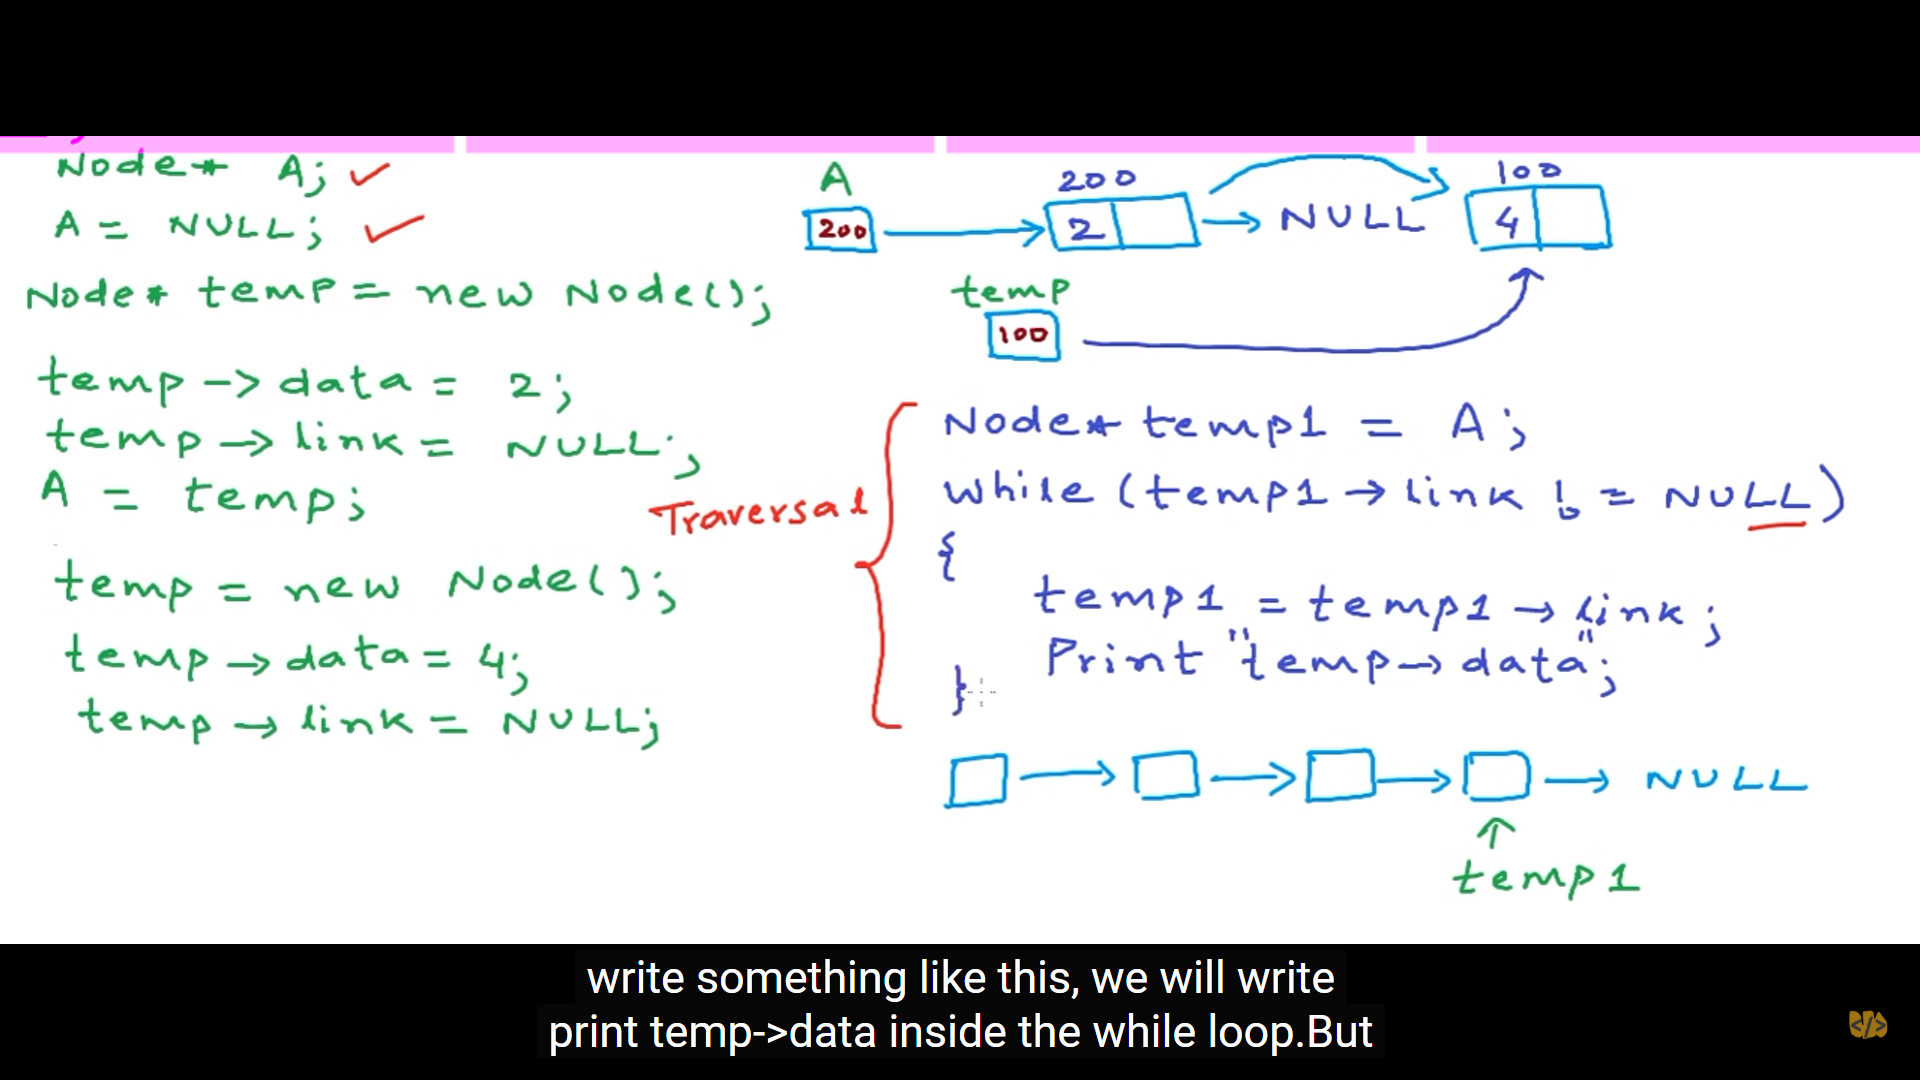 Node* A;
A = NULL;
Node* temp = new Node();
temp -> data = 2;
temp -> link = NULL;
A = temp;
temp = new Node();
temp -> data = 4;
temp -> link = NULL;
A
200
200
2
NULL
100
4
temp
100
Traversal
Node* temp1 = A;
while (temp1 -> link != NULL)
{
temp1 = temp1 -> link;
Print "temp -> data";
}
NULL
temp1
write something like this, we will write
print temp->data inside the while loop.But